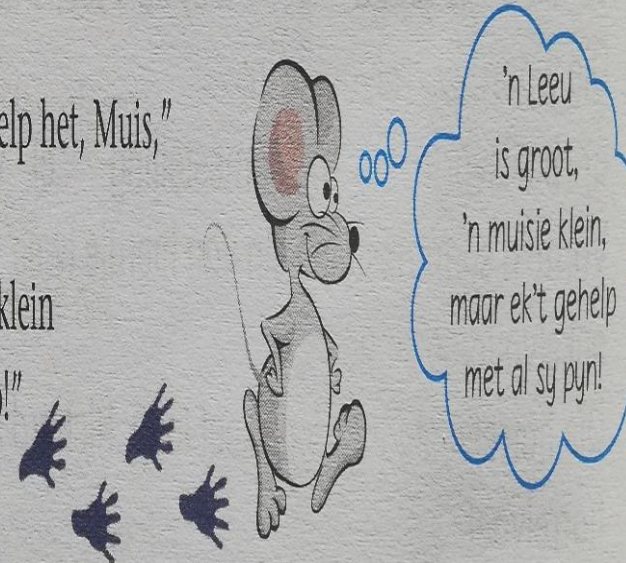 help het, Muis,"
klein
!"
'n Leeu
is groot,
'n muisie klein,
maar ek't gehelp
met al sy pyn!